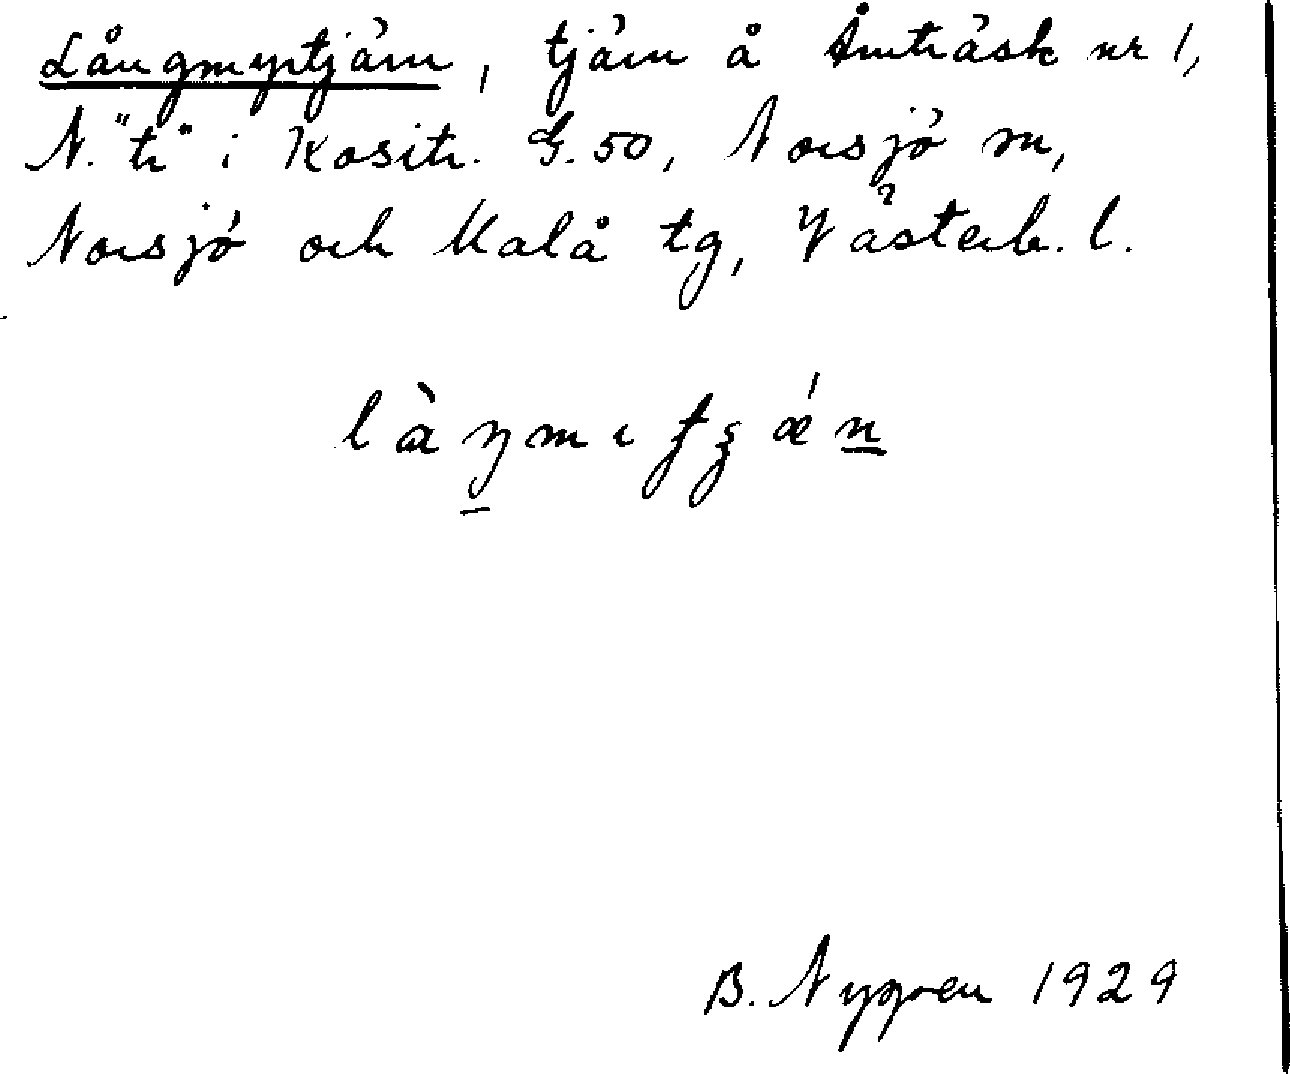 Långmyrtjärn, tjärn å Åmträsk nr 1,
N. "tr" i Kositr. G. 50, Norsjö sn,
Norsjö och Malå tg, Västerb. l.
B. Nygren 1929